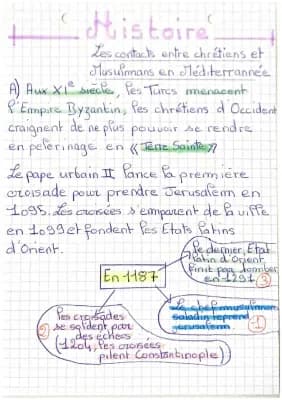 Histoire
Les contacts entre chrétiens et
Musulmans en Méditerrannée
A) Aux XIe siècle, les Turcs menacent
l'Empire Byzantin, les chrétiens d'Occident
craignent de ne plus pouvoir se rendre
en pelerinage en « Terre Sainte »
Le pape urbain II lance la première
croisade pour prendre Jerusalem en
1095. Les croisées s'emparent de la ville
en 1099 et fondent les Etats latins
d'Orient.
En 1187
le dernier, Etat
latin d'Orient
finit par tomber
en 1291
3
Le chef musulman
saladin reprend
jerusalem.
1
les croisades
se soldent par
des échecs
(1204, les croisées
pilent Constantinople)
2